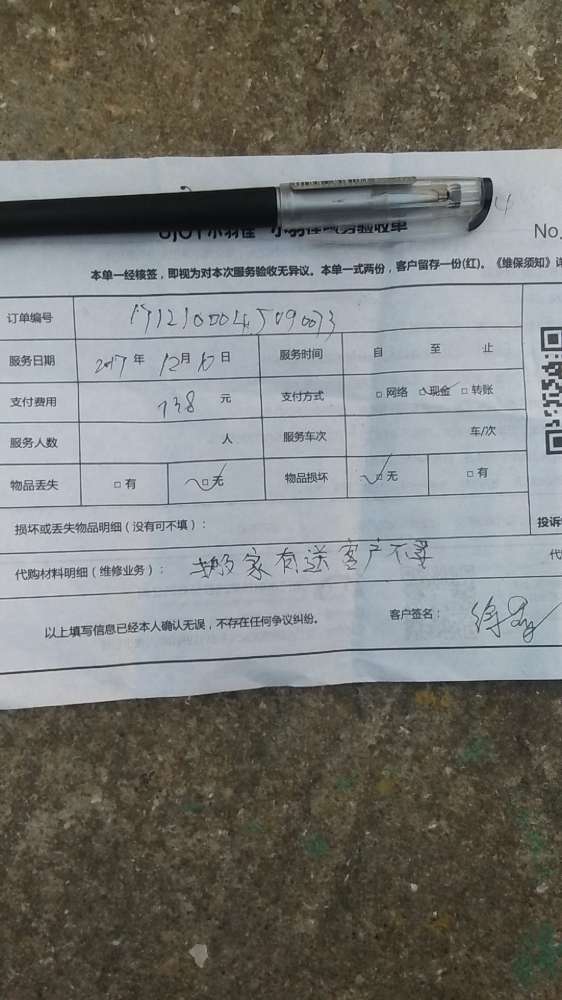 服务验收单
No.
本单一经核签，即视为对本次服务验收无异议。本单一式两份，客户留存一份(红)。《维保须知》
订单编号
服务日期 2017 年 12 月 10 日 服务时间 自 至 止
支付费用 738 元 支付方式 □ 网络 □ 现金 □ 转账
服务人数 人 服务车次 车/次
物品丢失 □ 有 □ 无 物品损坏 □ 无 □ 有
损坏或丢失物品明细（没有可不填）：
投诉
代购材料明细（维修业务）： 搬家有送客户不要
以上填写信息已经本人确认无误，不存在任何争议纠纷。 客户签名：